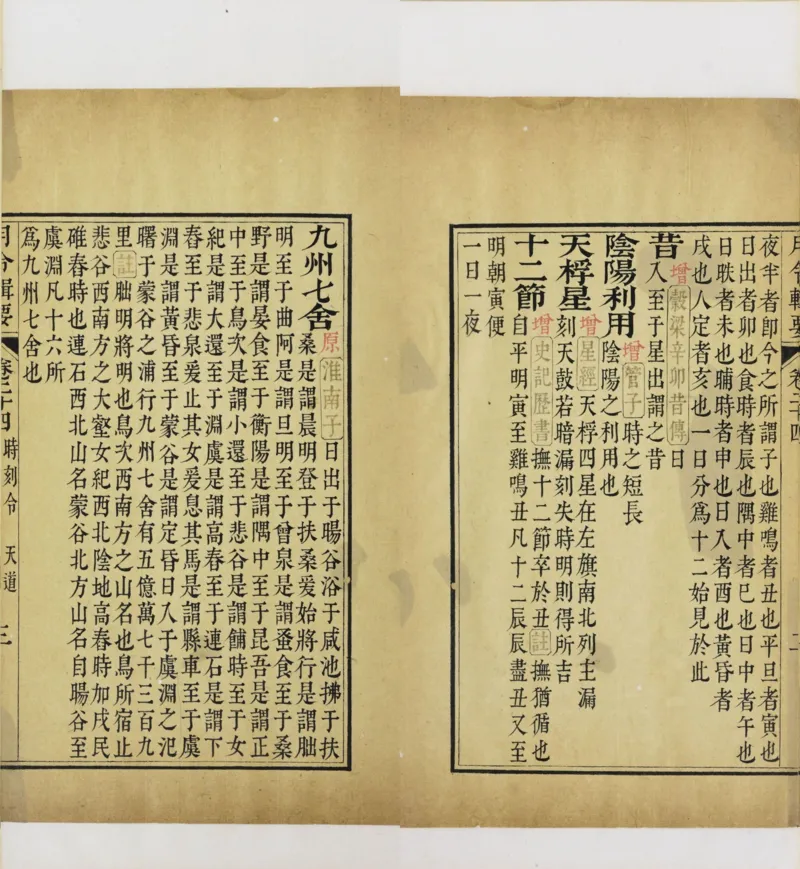 月令輯要 卷二十四 二
夜半者即今之所謂子也雞鳴者丑也平旦者寅也
日出者卯也食時者辰也隅中者巳也日中者午也
日昳者未也晡時者申也日入者酉也黃昏者
戌也人定者亥也一日分爲十二始見於此
昔 增 穀梁辛卯昔傳 日
入至于星出謂之昔
陰陽利用 增 管子 時之短長
陰陽之利用也
天桴星 增 星經 天桴四星在左旗南北列主漏
刻天鼓若暗漏刻失時明則得所吉
十二節 增 史記歷書 撫十二節卒於丑 註 撫猶循也
自平明寅至雞鳴丑凡十二辰辰盡丑又至
明朝寅便
一日一夜
九州七舍 原 淮南子 日出于暘谷浴于咸池拂于扶
桑是謂晨明登于扶桑爰始將行是謂朏
明至于曲阿是謂旦明至于曾泉是謂蚤食至于桑
野是謂晏食至于衡陽是謂隅中至于昆吾是謂正
中至于鳥次是謂小還至于悲谷是謂餔時至于女
紀是謂大還至于淵虞是謂高舂至于連石是謂下
舂至于悲泉爰止其女爰息其馬是謂縣車至于虞
淵是謂黃昏至于蒙谷是謂定昏日入于虞淵之汜
曙于蒙谷之浦行九州七舍有五億萬七千三百九
里 註 朏明將明也鳥次西南方之山名也鳥所宿止
悲谷西南方之大壑女紀西北陰地高舂時加戌民
碓舂時也連石西北山名蒙谷北方山名自暘谷至
虞淵凡十六所
爲九州七舍也
月令輯要 卷二十四 時刻令 天道 三